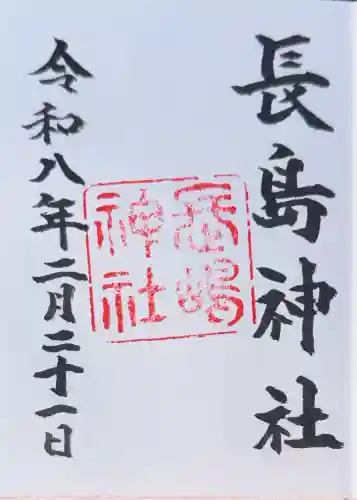 長島神社
長嶋神社
令和八年二月二十一日